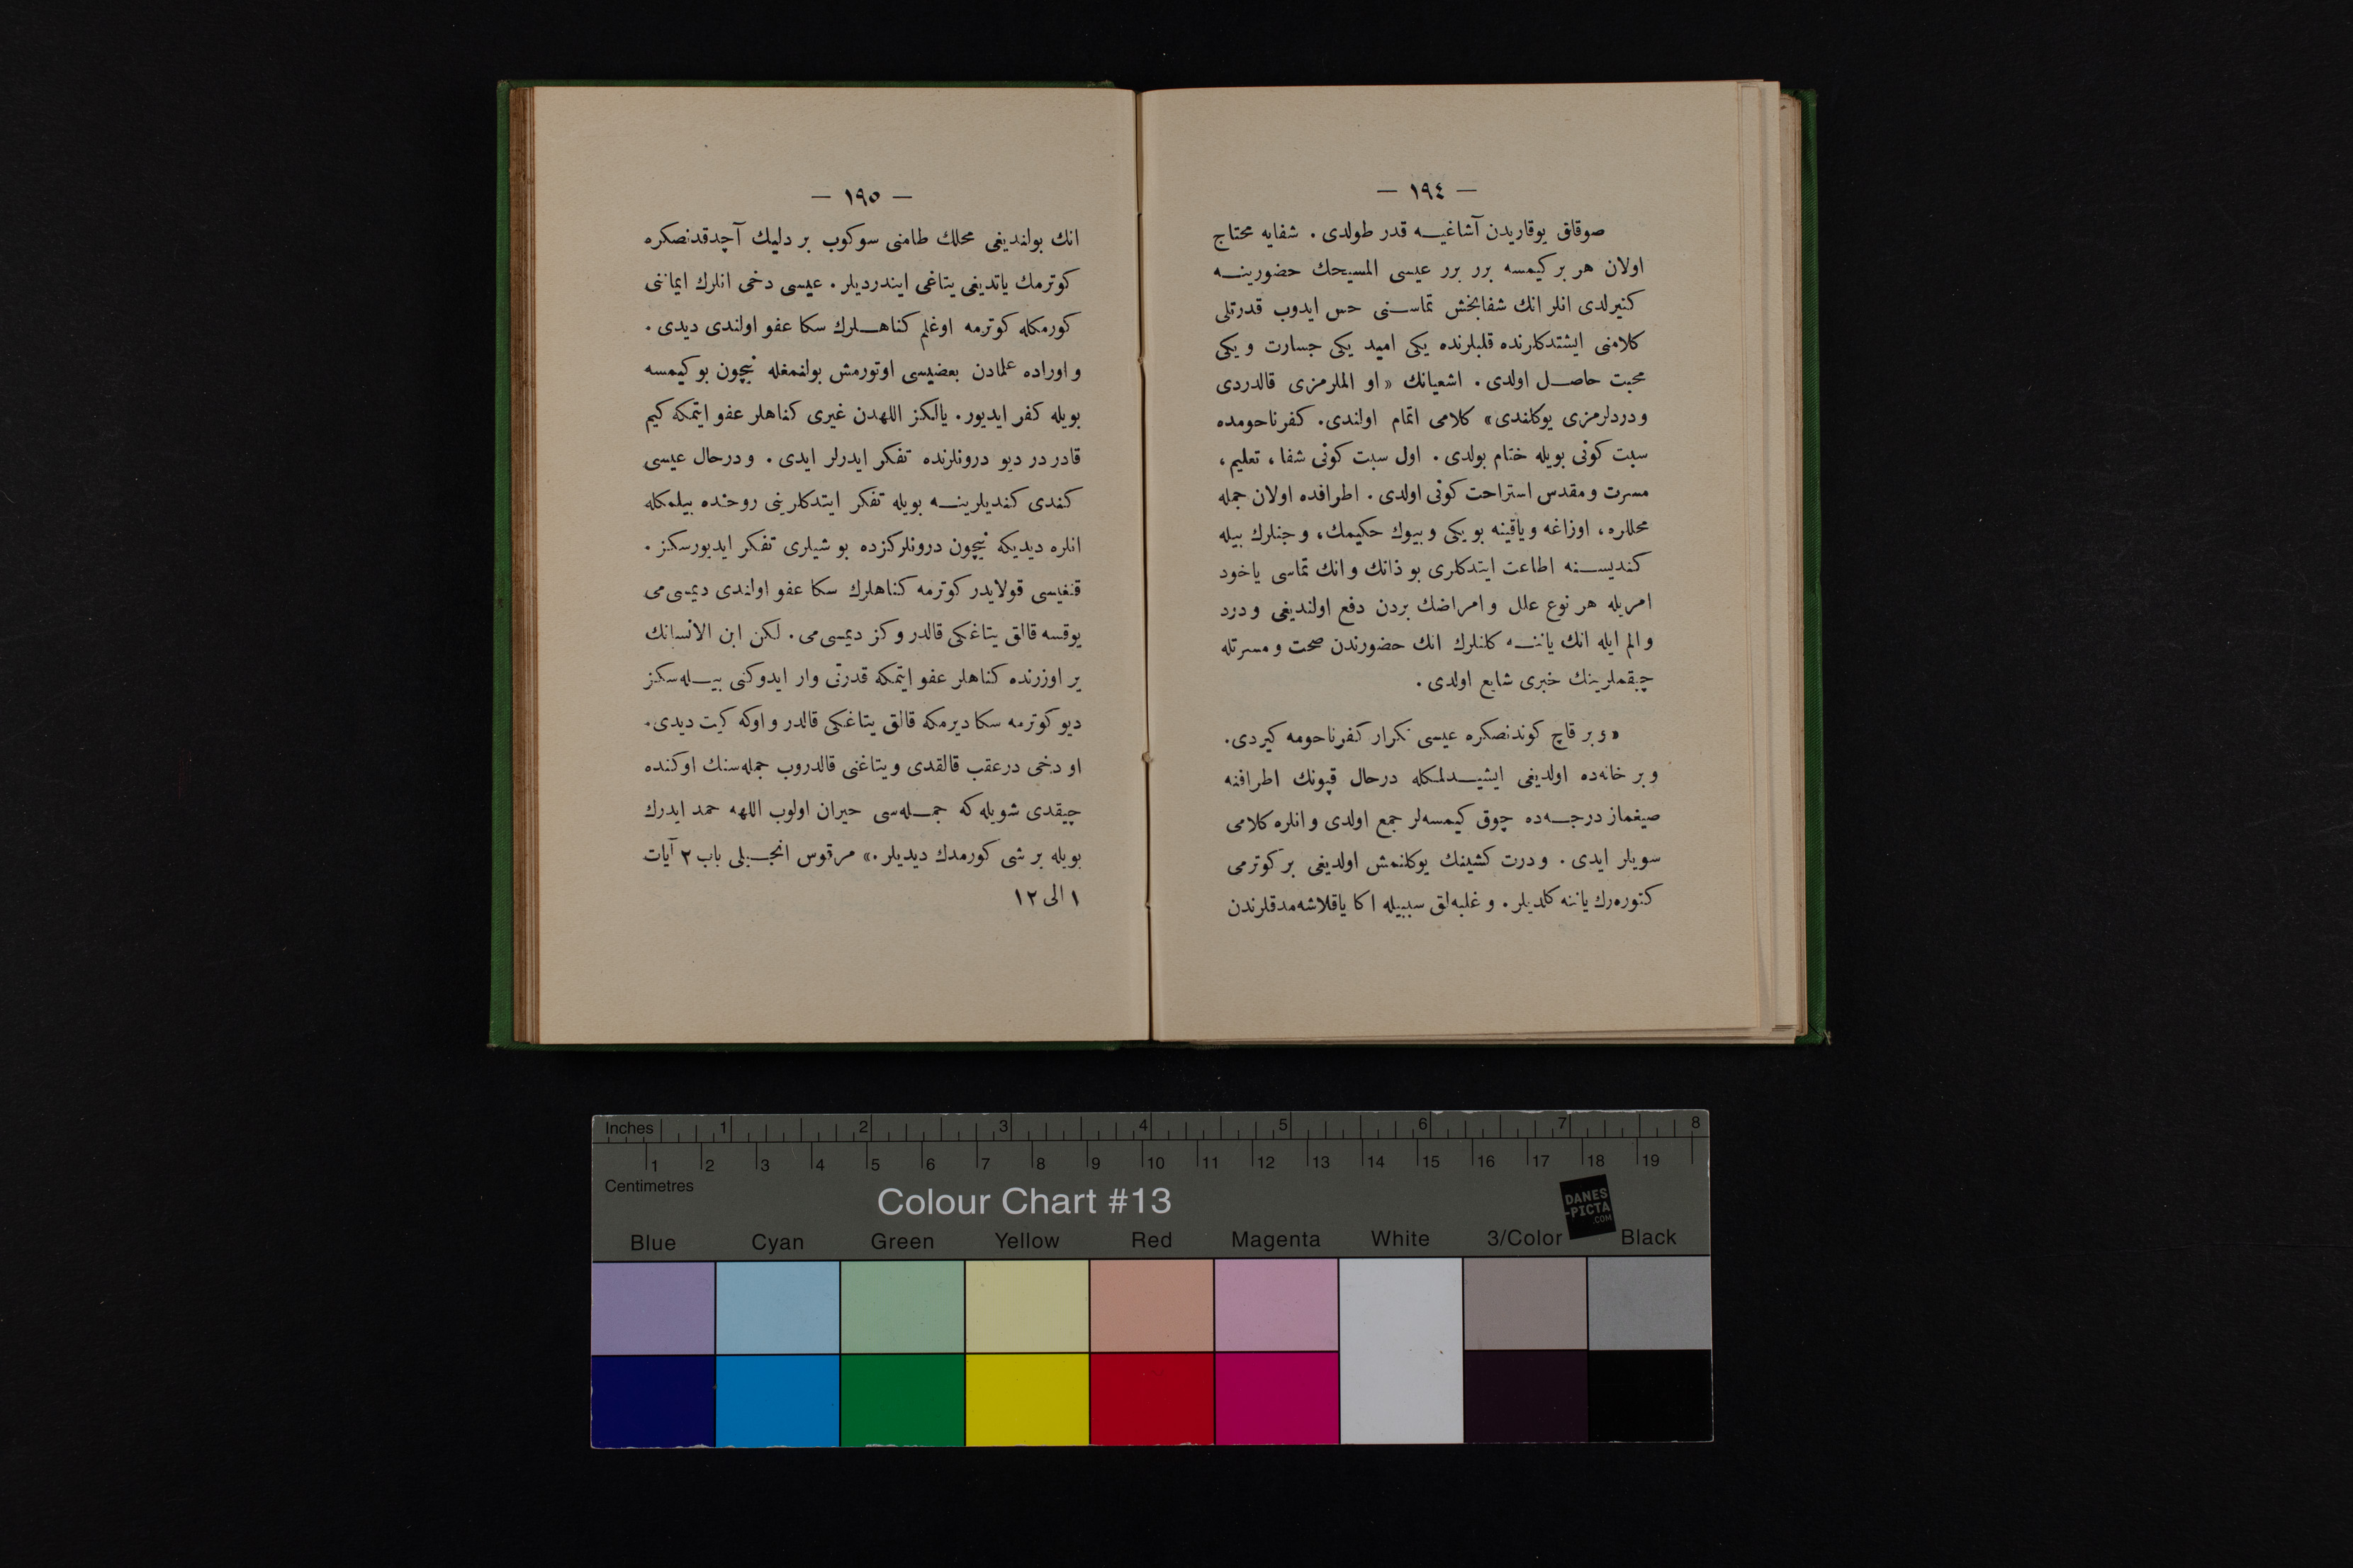 — ١٩٤ —
صوقاق يوقاريدن آشاغيــه قدر طولدى . شفايه محتاج
اولان هر بر كيمسه برر برر عيسى المسيحك حضورينــه
كتيرلدى انلر انك شفابخش تماســنى حس ايدوب قدرتلى
كلامنى ايشتدكلرنده قلبلرنده يكى اميد يكى جسارت و يكى
محبت حاصــل اولدى . اشعيانك « او المرلمزى قالدردى
و دردلرمزى يوكلندى» كلامى اتمام اولندى . كفرناحومده
سبت كونى بويله ختام بولدى . اول سبت كونى شفا ، تعليم ،
مسرت و مقدس استراحت كونى اولدى . اطرافده اولان جمله
محللره ، اوزاغه و ياقينه بو يكى و بيوك حكيمك ، و جنلرك بيله
كنديســنه اطاعت ايتدكلرى بو ذاتك و انك تماسى ياخود
امريله هر نوع علل و امراضك بردن دفع اولنديغى و درد
و الم ايله انك ياننــه كلنلرك انك حضورندن صحت و مسرتله
چيقملرينك خبرى شايع اولدى .
« و بر قاچ كوندنصكره عيسى تكرار كفرناحومه كيردى .
و بر خانه‌ده اولديغى ايشيــدلمكله درحال قپونك اطرافنه
صيغماز درجــه‌ده چوق كيمسه‌لر جمع اولدى و انلره كلامى
سويلر ايدى . و درت كشينك يوكلنمش اولديغى بر كوترمى
كتوره‌رك ياننه كلديلر . و غلبه‌لق سببيله اكا ياقلاشه‌مدقلرندن
— ١٩٥ —
انك بولنديغى محلك طامنى سوكوب بر دليك آچدقدنصكره
كوترمك ياتديغى يتاغى اينديرديلر . عيسى دخى انلرك ايماننى
كورمكله كوترمه اوغلم كناهــلرك سكا عفو اولندى ديدى .
و اوراده علمادن بعضيسى اوتورمش بولنمغله نيچون بو كيمسه
بويله كفر ايديور . يالكز اللهدن غيرى كناهلر عفو ايتمكه كيم
قادر در ديو درونلرنده تفكر ايدرلر ايدى . و درحال عيسى
كندى كنديلرينــه بويله تفكر ايتدكلرينى روحنده بيلمكله
انلره ديديكه نيچون درونلركزده بو شيلرى تفكر ايديورسكز .
قنغيسى قولايدر كوترمه كناهلرك سكا عفو اولندى ديمسى مى
يوقسه قالق يتاغكى قالدر و كز ديمسى مى . لكن ابن الانسانك
ير اوزرنده كناهلر عفو ايتمكه قدرتى وار ايدوكنى بيــله‌سكز
ديو كوترمه سكا ديرمكه قالق يتاغكى قالدر و اوكه كيت ديدى .
او دخى درعقب قالقدى و يتاغنى قالدروب جمله‌سنك اوكنده
چيقدى شويله كه جمــله‌سى حيران اولوب اللهه حمد ايدرك
بويله بر شى كورمدك ديديلر .» مرقوس انجــيلى باب ٢ آيات
١ الى ١٢
Inches 1 2 3 4 5 6 7 8
1 2 3 4 5 6 7 8 9 10 11 12 13 14 15 16 17 18 19
Centimetres
Colour Chart #13
DANES
-PICTA
.COM
Blue Cyan Green Yellow Red Magenta White 3/Color Black